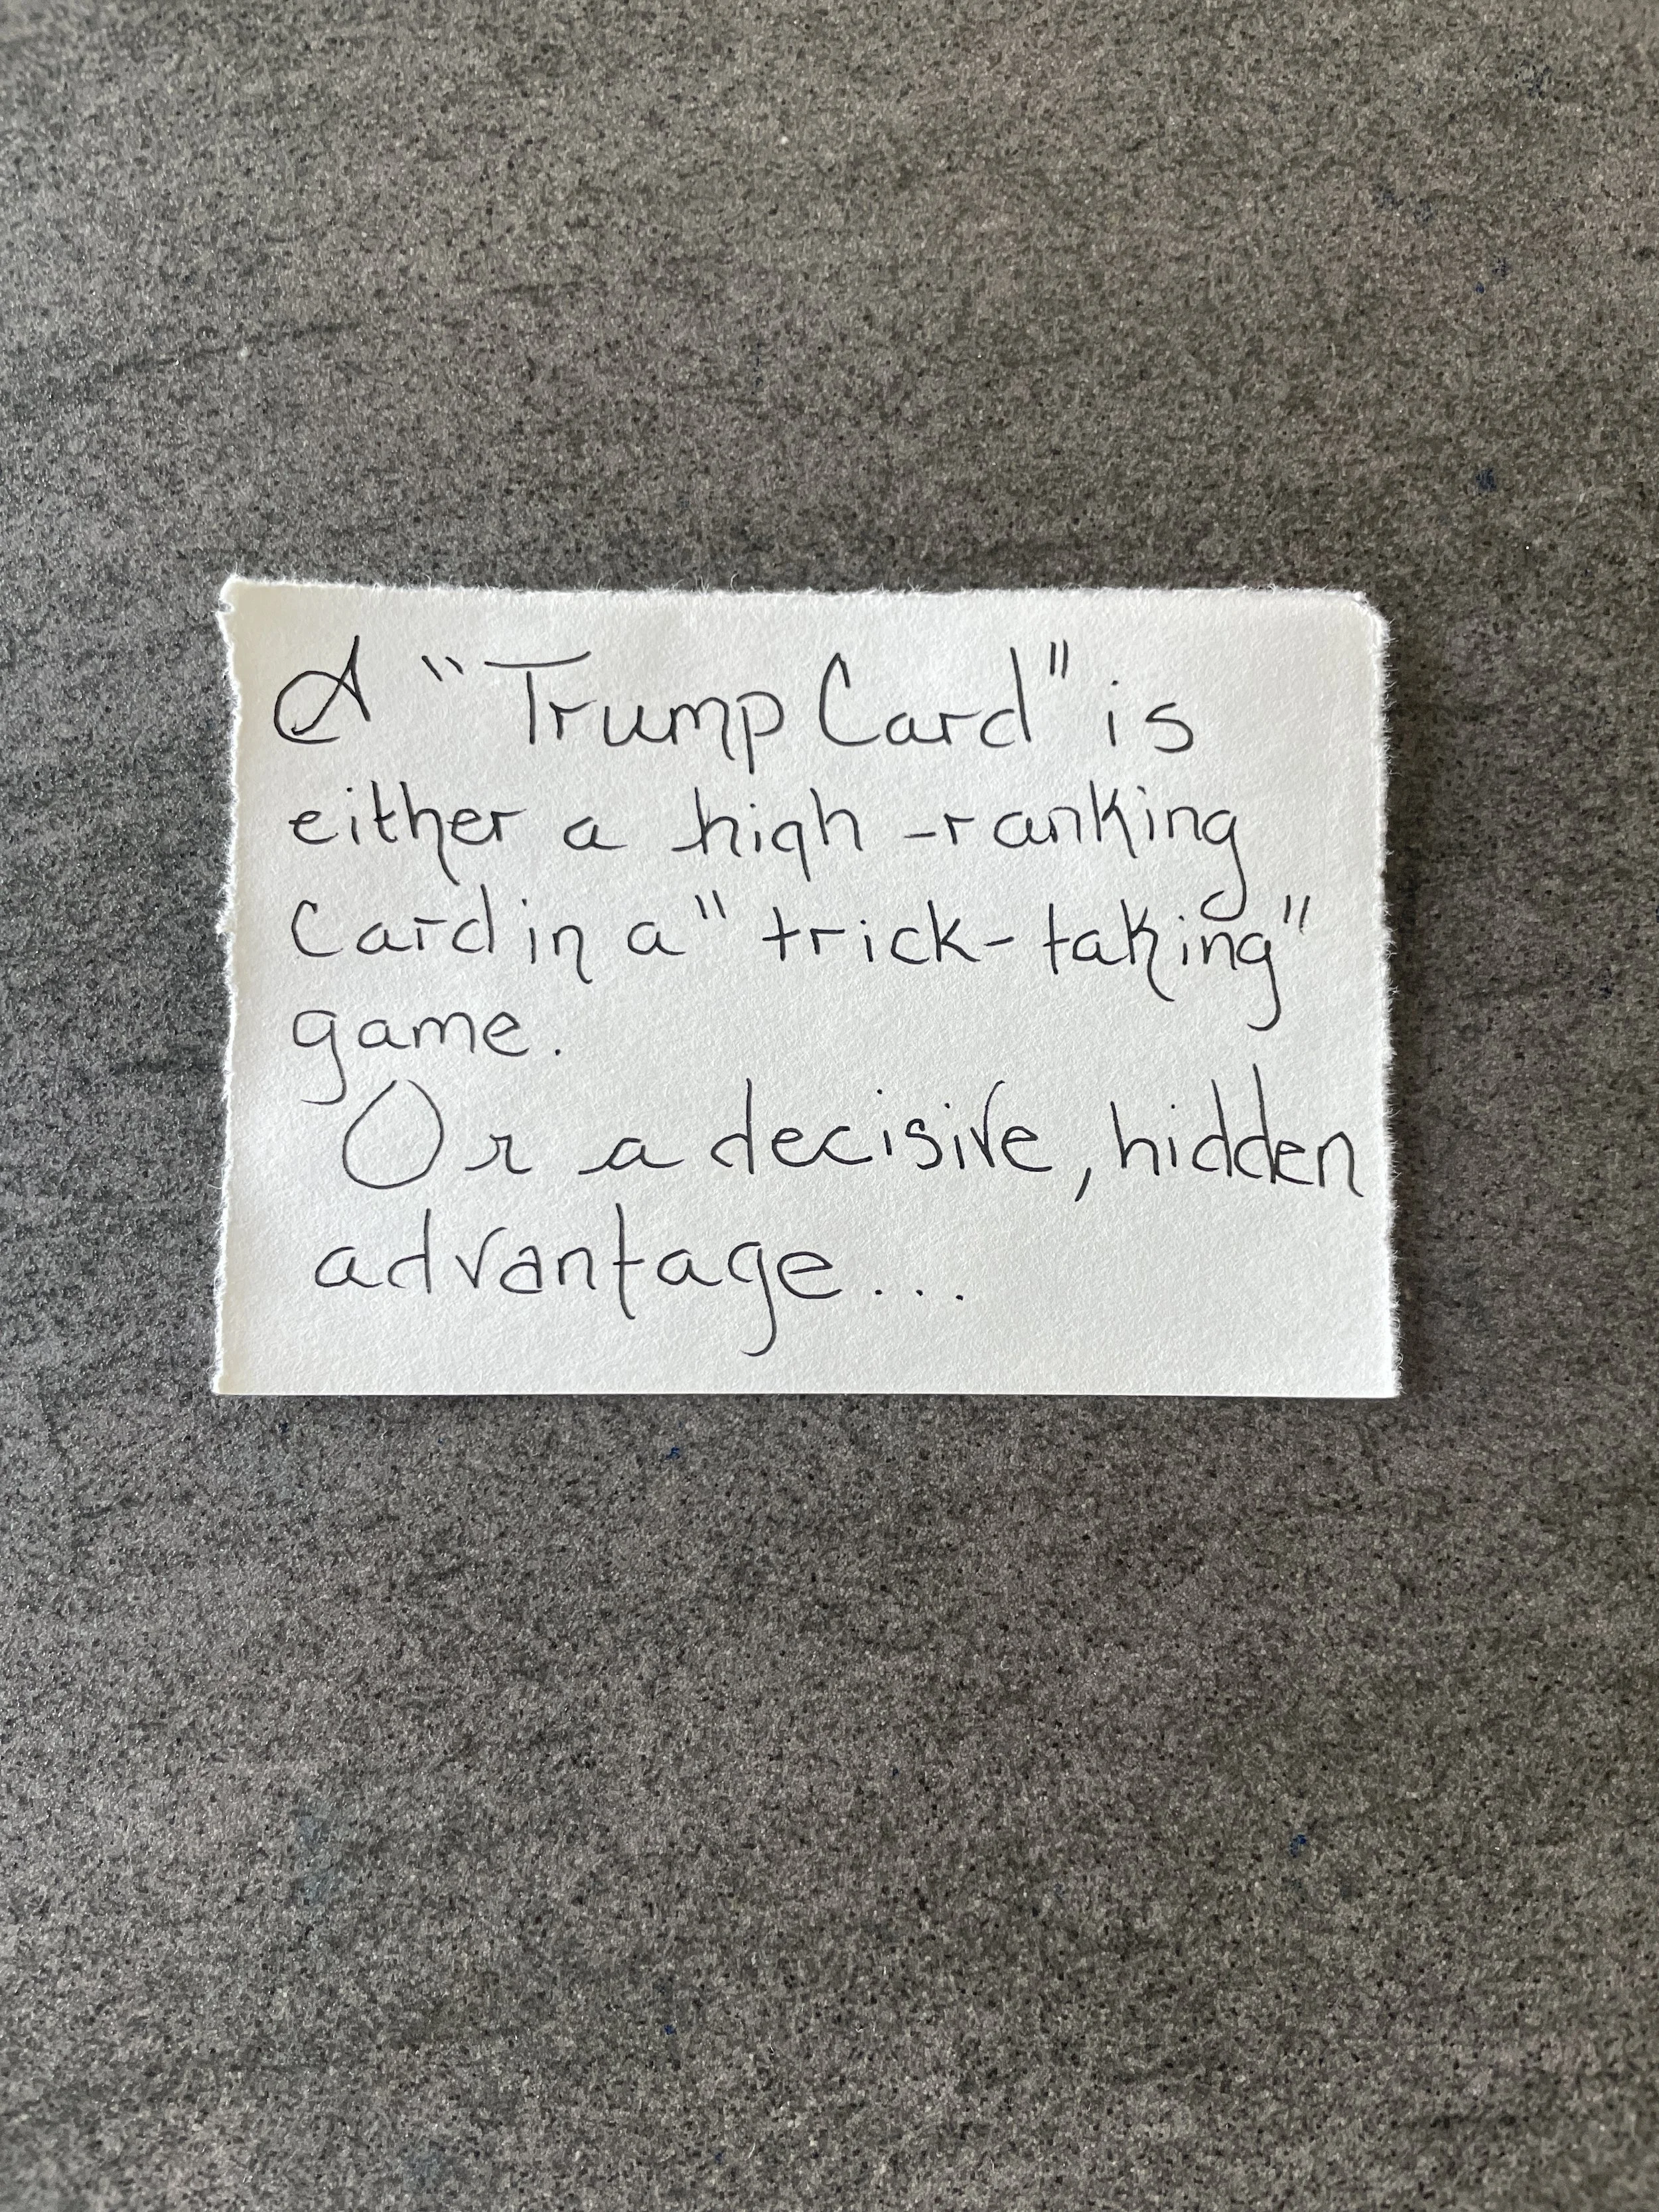 A "Trump Card" is
either a high-ranking
Card in a "trick-taking"
game.
Or a decisive, hidden
advantage...